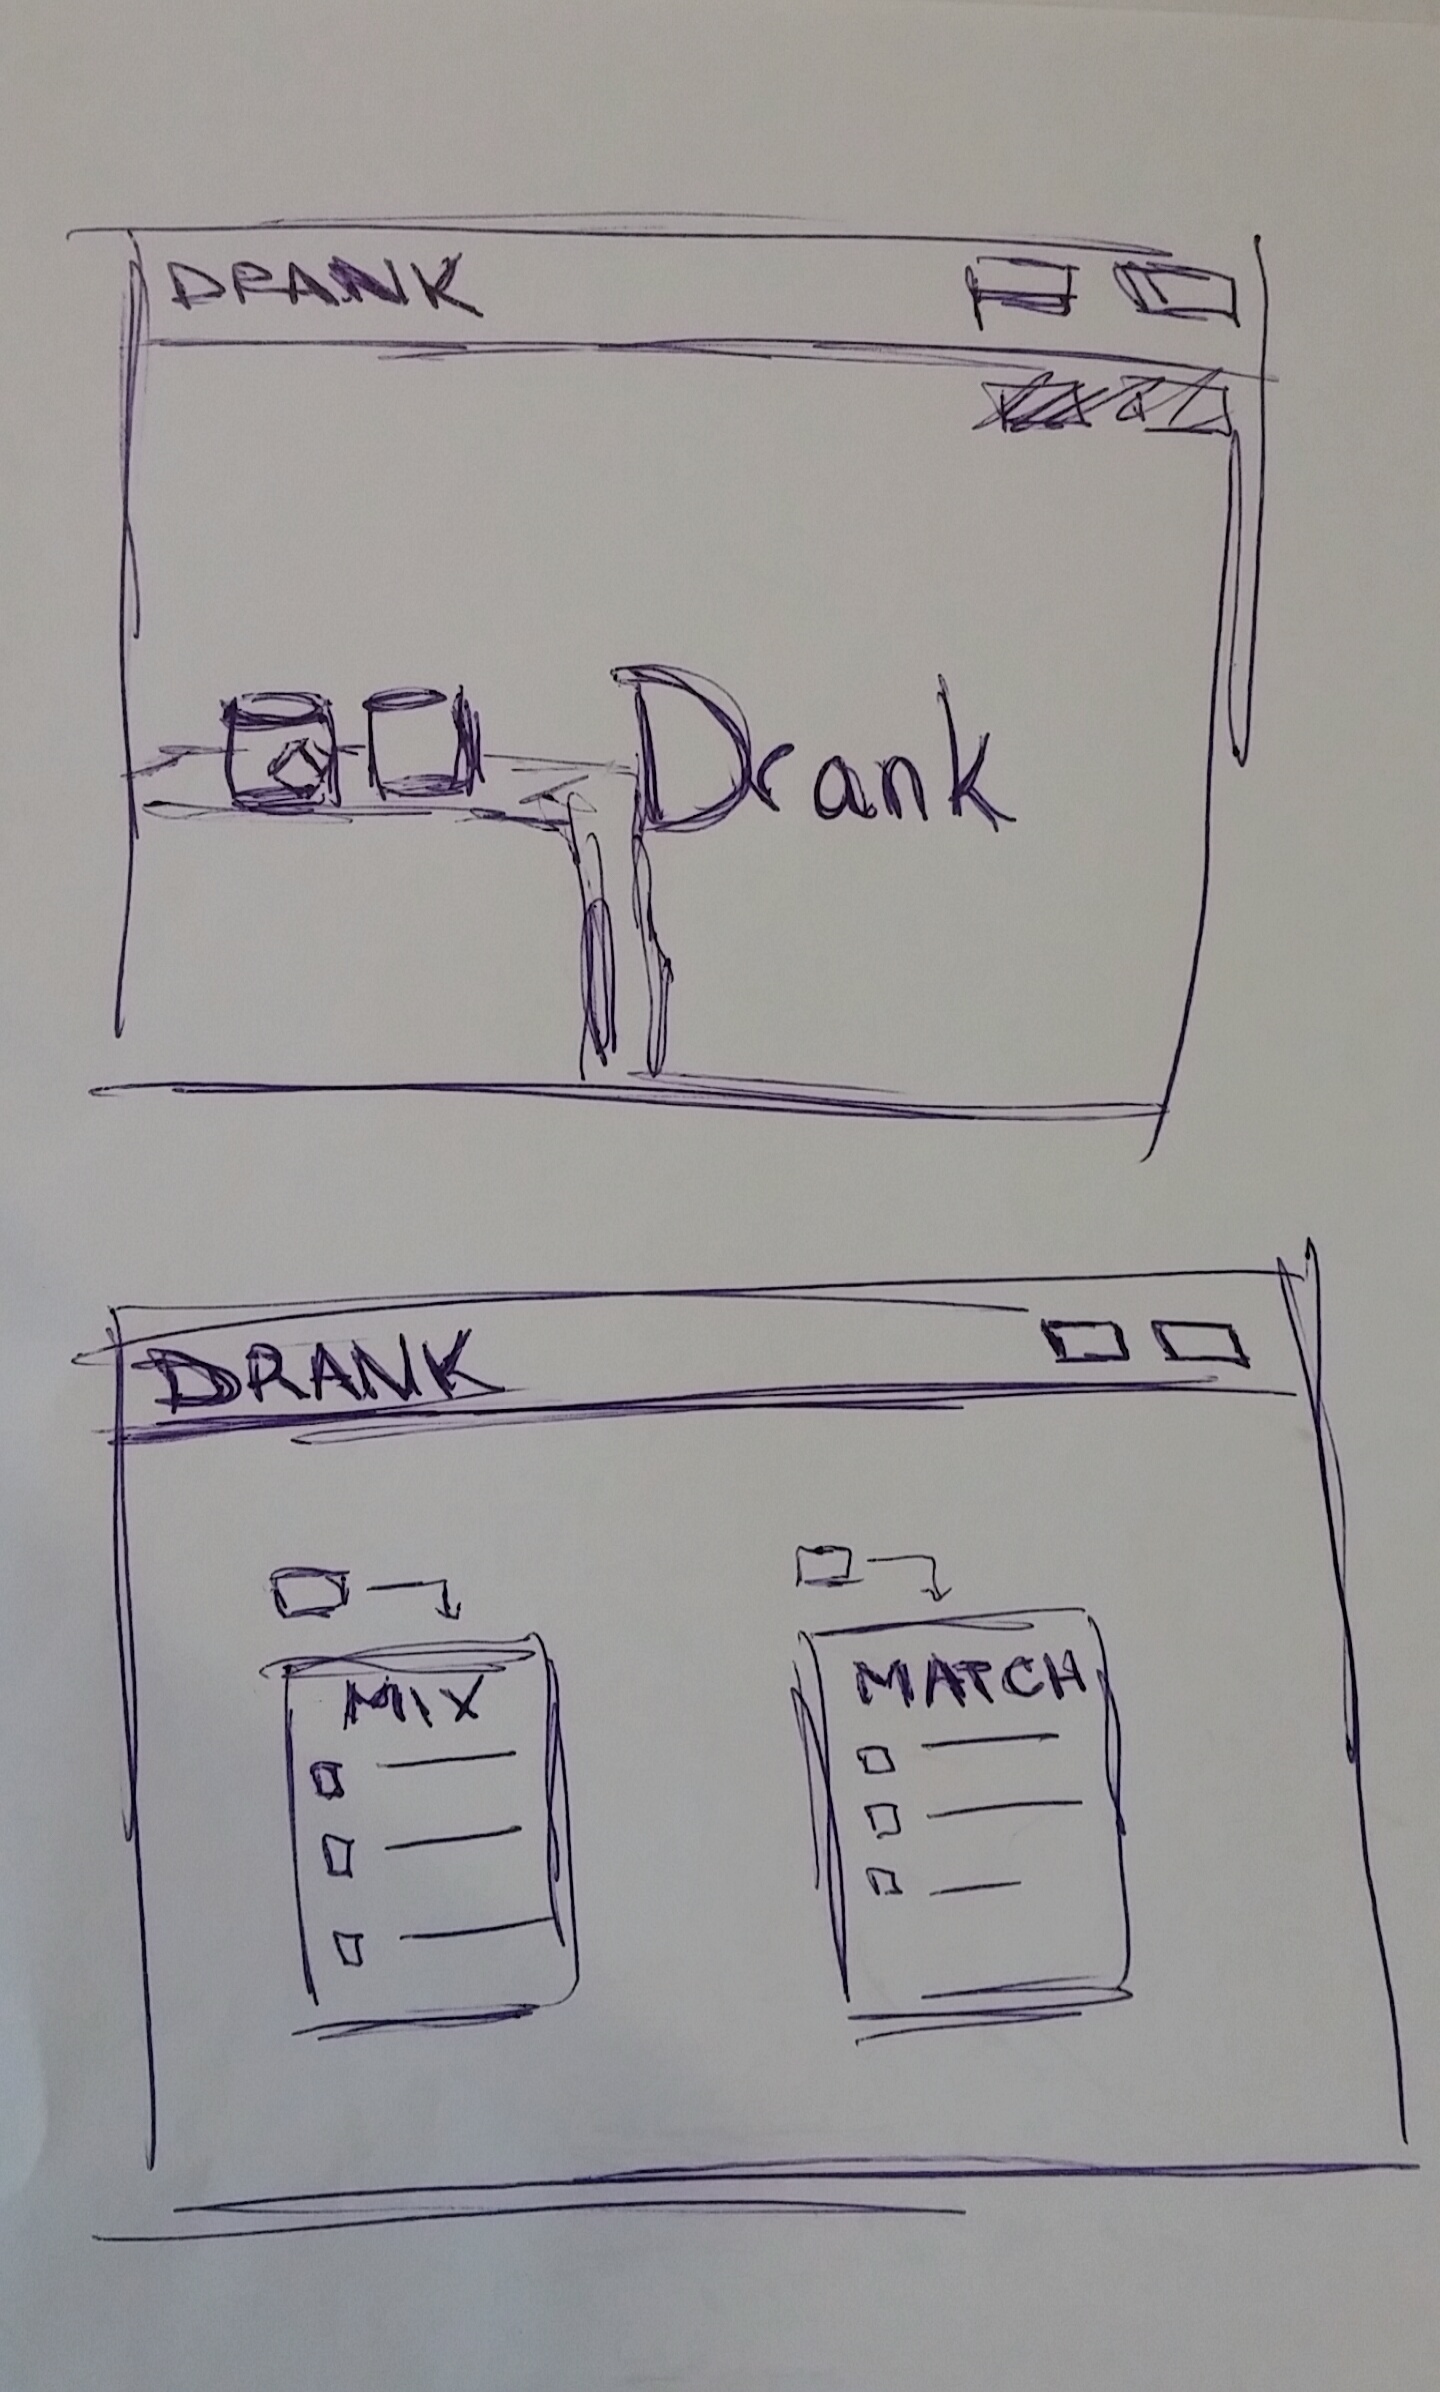 DRANK
Drank
DRANK
MIX
MATCH